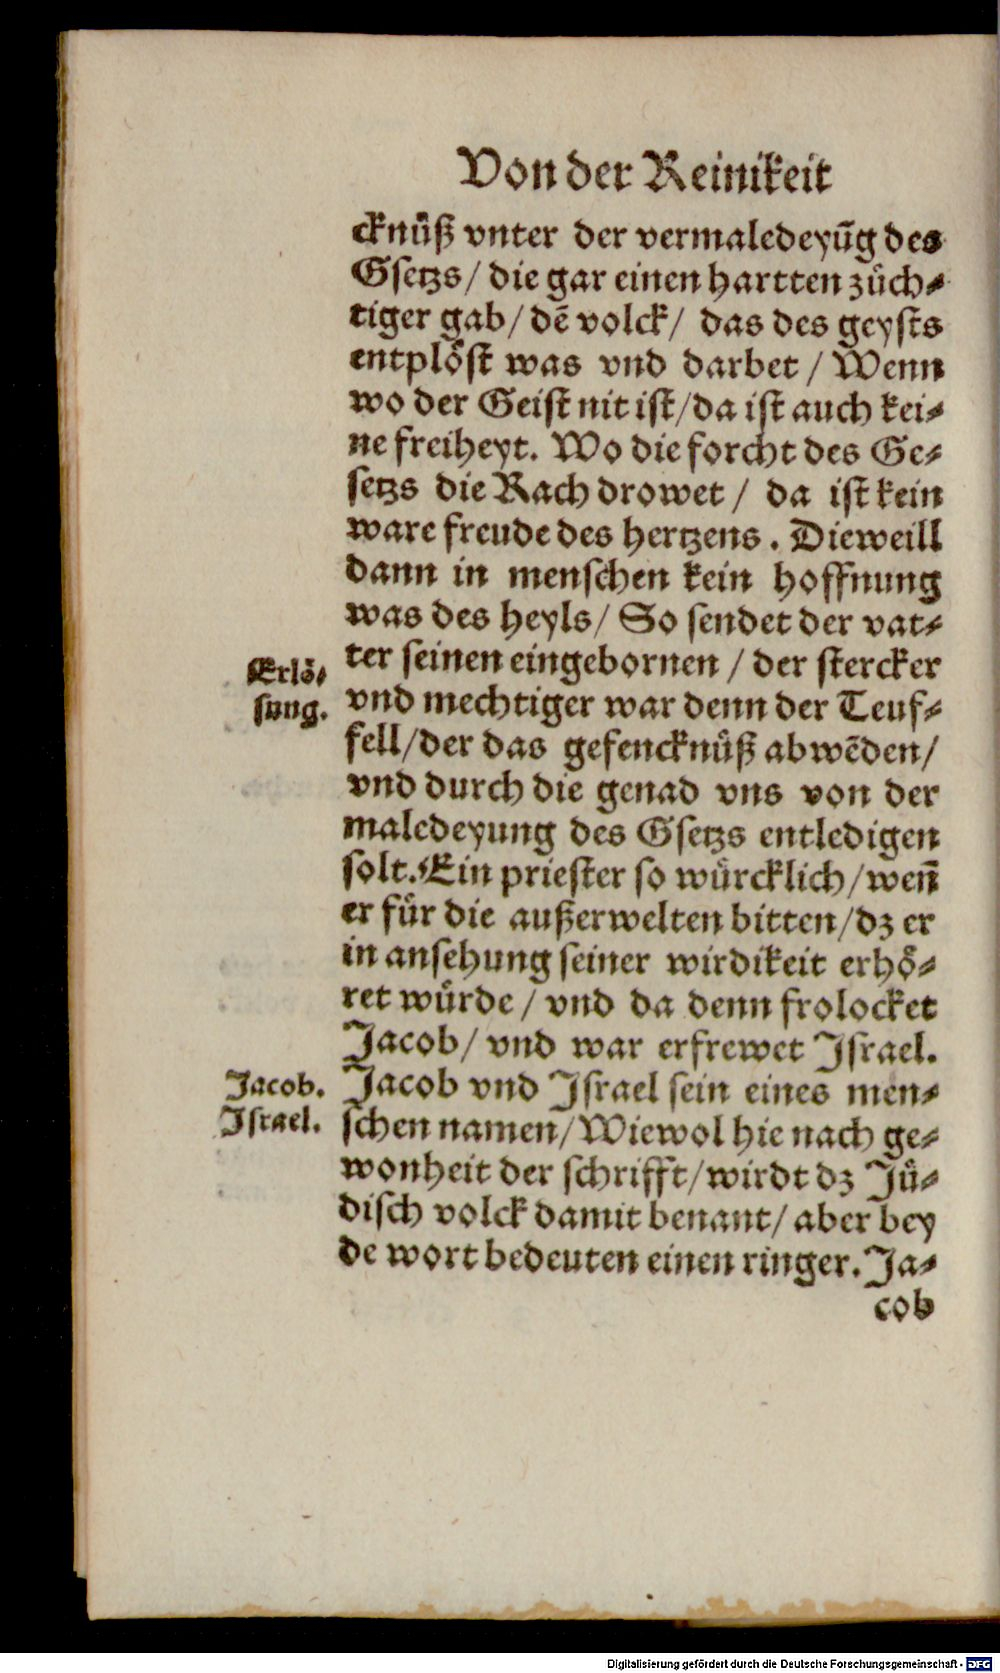 Von der Reinikeit
cknuͤß vnter der vermaledeyūg des
Gsetzs/ die gar einen hartten zuͤch⸗
tiger gab/ dē volck/ das des geysts
entploͤst was vnd darbet / Wenn
wo der Geist nit ist/da ist auch kei⸗
ne freiheyt. Wo die forcht des Ge⸗
setzs die Rach drowet / da ist kein
ware freude des hertzens. Dieweill
dann in menschen kein hoffnung
was des heyls/ So sendet der vat⸗
ter seinen eingebornen / der stercker
Erloͤ⸗
sung.
vnd mechtiger war denn der Teuf⸗
fell/der das gefencknuͤß abwēden/
vnd durch die genad vns von der
maledeyung des Gsetzs entledigen
solt. Ein priester so wuͤrcklich/wen̄
er fuͤr die außerwelten bitten/dz er
in ansehung seiner wirdikeit erhoͤ⸗
ret wuͤrde / vnd da denn frolocket
Jacob/ vnd war erfrewet Israel.
Jacob.
Israel.
Jacob vnd Israel sein eines men⸗
schen namen/Wiewol hie nach ge⸗
wonheit der schrifft/wirdt dz Juͤ⸗
disch volck damit benant/ aber bey
de wort bedeuten einen ringer. Ja⸗
cob
Digitalisierung gefördert durch die Deutsche Forschungsgemeinschaft - DFG